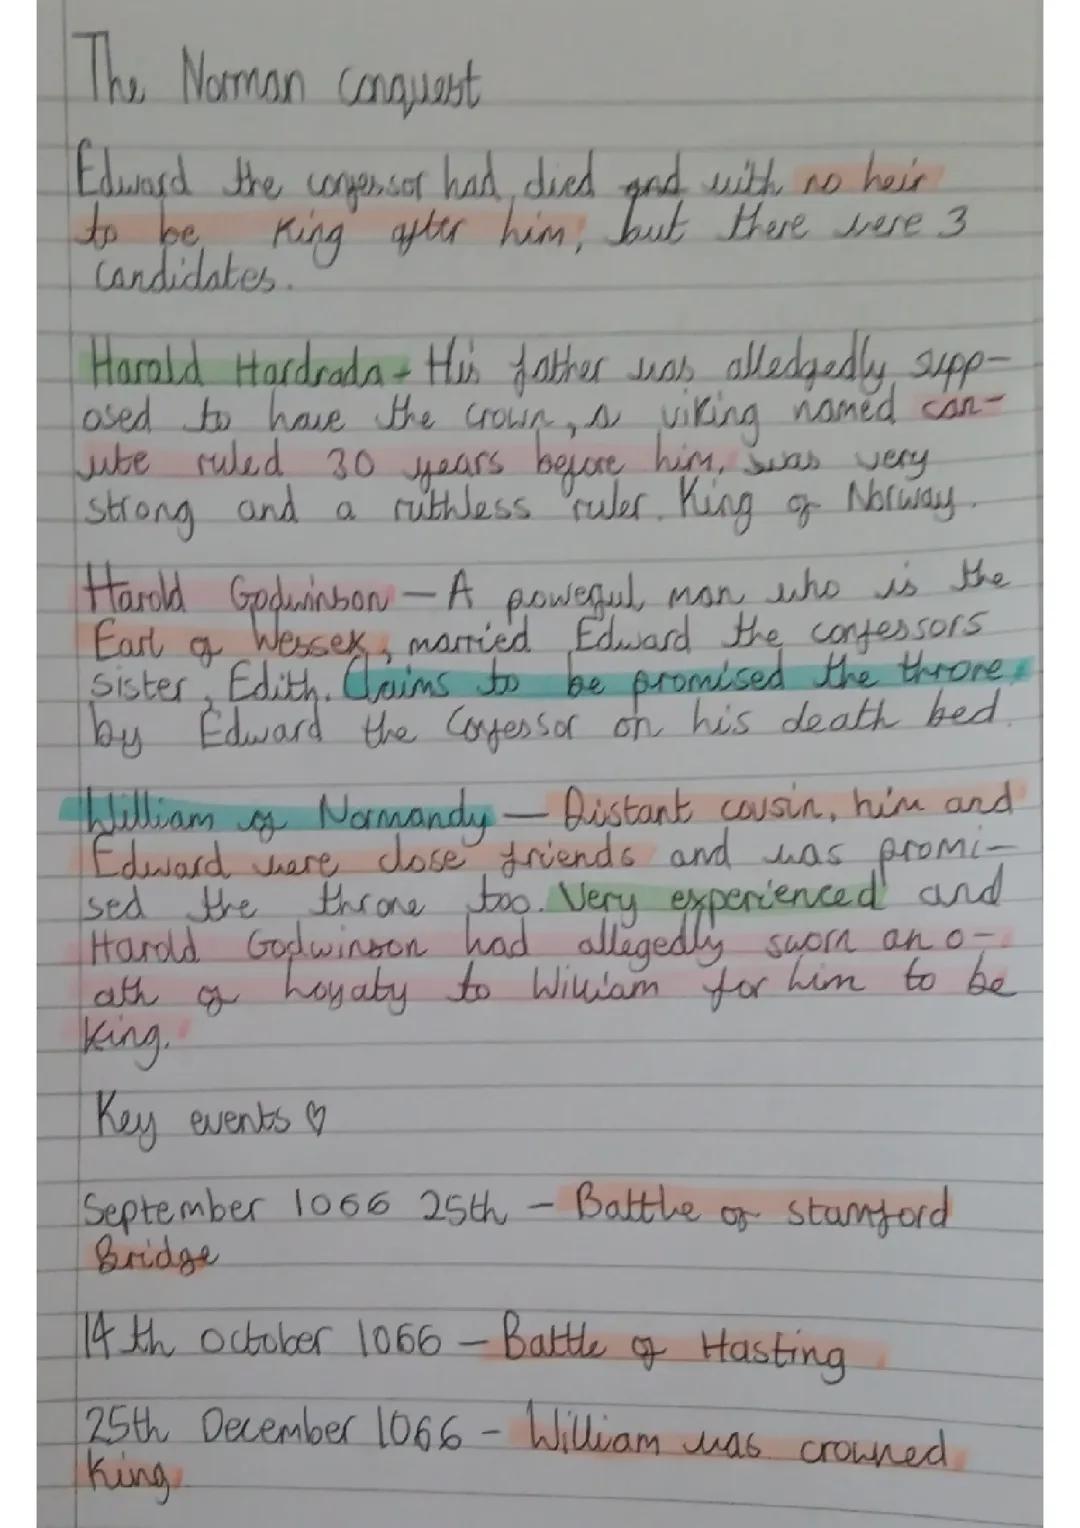 The Norman conquest
Edward the confessor had died and with no heir
to be King after him, but there were 3
candidates.
Harald Hardrada - His father was alledgedly supp-
osed to have the crown, a viking named can-
ute ruled 30 years before him, was very
strong and a ruthless ruler. King of Norway.
Harold Godwinson - A powerful man who is the
Earl of Wessex, married Edward the confessors
sister, Edith. Claims to be promised the throne
by Edward the Confessor on his death bed.
William of Normandy - Distant cousin, him and
Edward were close friends and was promi-
sed the throne too. Very experienced and
Harold Godwinson had allegedly sworn an o-
ath of loyaty to William for him to be
King.
Key events ♡
September 1066 25th - Battle of stamford
Bridge
14th october 1066 - Battle of Hasting
25th December 1066 - William was crowned
King